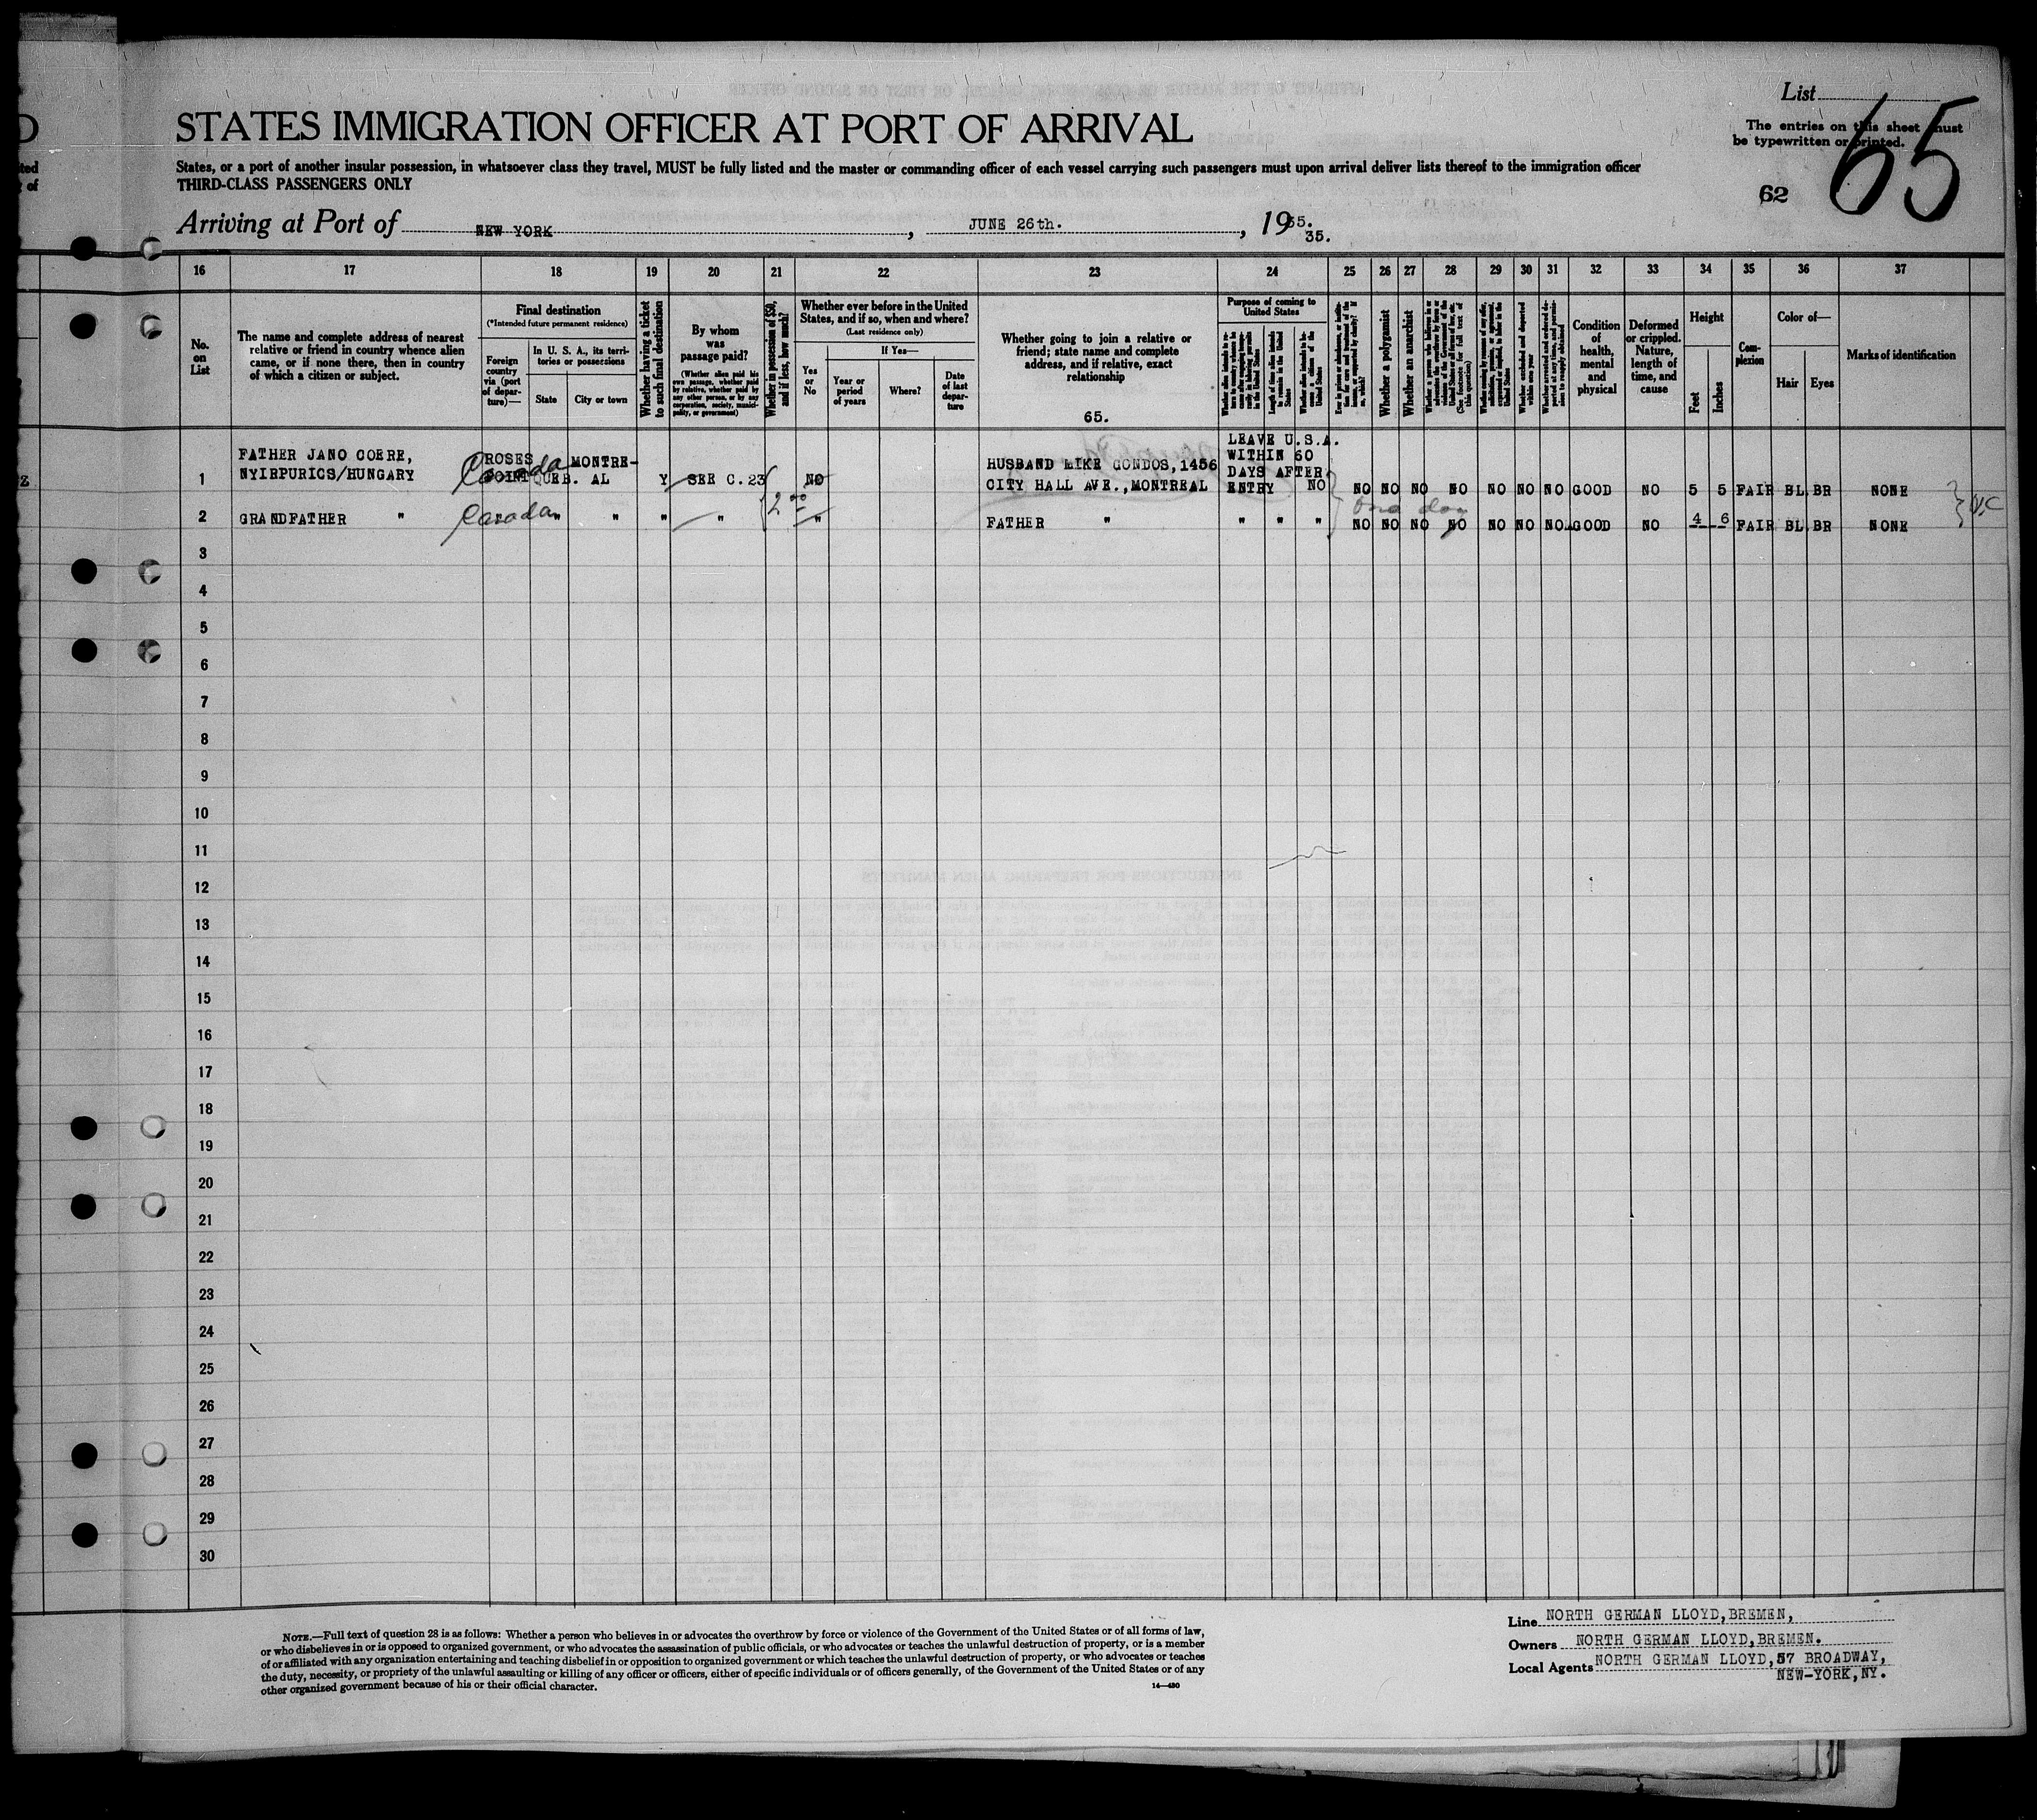 List
The entries on this sheet must
be typewritten or printed.
65
62
STATES IMMIGRATION OFFICER AT PORT OF ARRIVAL
States, or a port of another insular possession, in whatsoever class they travel, MUST be fully listed and the master or commanding officer of each vessel carrying such passengers must upon arrival deliver lists thereof to the immigration officer
THIRD-CLASS PASSENGERS ONLY
Arriving at Port of NEW YORK, JUNE 26th., 1935.
35.
16 17 18 19 20 21 22 23 24 25 26 27 28 29 30 31 32 33 34 35 36 37
No.
on
List
The name and complete address of nearest
relative or friend in country whence alien
came, or if none there, then in country
of which a citizen or subject.
Final destination
(*Intended future permanent residence)
Foreign
country
via (port
of depar-
ture)—
In U. S. A., its terri-
tories or possessions
State
City or town
Whether having a ticket
to such final destination
By whom
was
passage paid?
(Whether alien paid his
own passage, whether paid
by relative, whether paid by
any other person, or by any
corporation, society, munici-
pality, or government)
Whether in possession of $50,
and if less, how much?
Whether ever before in the United
States, and if so, when and where?
(Last residence only)
Yes
or
No
If Yes—
Year or
period
of years
Where?
Date
of last
depar-
ture
Whether going to join a relative or
friend; state name and complete
address, and if relative, exact
relationship
65.
Purpose of coming to
United States
Length of time alien intends
to remain in the United
States
Whether alien intends to be-
come a citizen of the
United States
Whether a polygamist
Whether an anarchist
Condition
of
health,
mental
and
physical
Deformed
or crippled.
Nature,
length of
time, and
cause
Height
Feet
Inches
Com-
plexion
Color of—
Hair
Eyes
Marks of identification
1 FATHER JANO COERE,
NYIRPURICS/HUNGARY
Canada
ROSES
POINT QUEB.
MONTRE-
AL
Y SEE C.23 NO
HUSBAND MIKE GONDOS,1456
CITY HALL AVE.,MONTREAL
LEAVE U.S.A.
WITHIN 60
DAYS AFTER
ENTRY NO
NO NO NO NO NO NO NO GOOD NO 5 5 FAIR BL BR NONE
2 GRANDFATHER " Canada " " " " 2 00 " FATHER " " " " One day NO NO NO NO NO NO NO GOOD NO 4 6 FAIR BL BR NONE
3
4
5
6
7
8
9
10
11
12
13
14
15
16
17
18
19
20
21
22
23
24
25
26
27
28
29
30
NOTE.—Full text of question 28 is as follows: Whether a person who believes in or advocates the overthrow by force or violence of the Government of the United States or of all forms of law,
or who disbelieves in or is opposed to organized government, or who advocates the assassination of public officials, or who advocates or teaches the unlawful destruction of property, or is a member
of or affiliated with any organization entertaining and teaching disbelief in or opposition to organized government or which teaches the unlawful destruction of property, or who advocates or teaches
the duty, necessity, or propriety of the unlawful assaulting or killing of any officer or officers, either of specific individuals or of officers generally, of the Government of the United States or of any
other organized government because of his or their official character.
14—430
Line NORTH GERMAN LLOYD,BREMEN,
Owners NORTH GERMAN LLOYD,BREMEN.
Local Agents NORTH GERMAN LLOYD,57 BROADWAY,
NEW-YORK,NY.